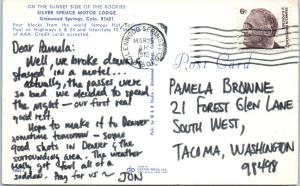 ON THE SUNSET SIDE OF THE ROCKIES
SILVER SPRUCE MOTOR LODGE
Glenwood Springs, Colo. 81601
Four blocks from the world famous Hot Springs
Pool on Highways 6 & 24 and Interstate 70.
of AAA. Credit cards accepted.
Dear Pamela:
Well, we broke down &
stayed in a motel...
actually, the passes were
so bad we decided to spend
the night — our first real
good rest.
Hope to make it to Denver
sometime tomorrow — some
good shots in Denver & the
surrounding area. The weather
really got foul all of a
sudden. Pray for us ~ JON
GLENWOOD SPRINGS
MAR 25
PM
6¢
Post Card
PAMELA BROWNE
21 FOREST GLEN LANE
SOUTH WEST,
TACOMA, WASHINGTON
98498